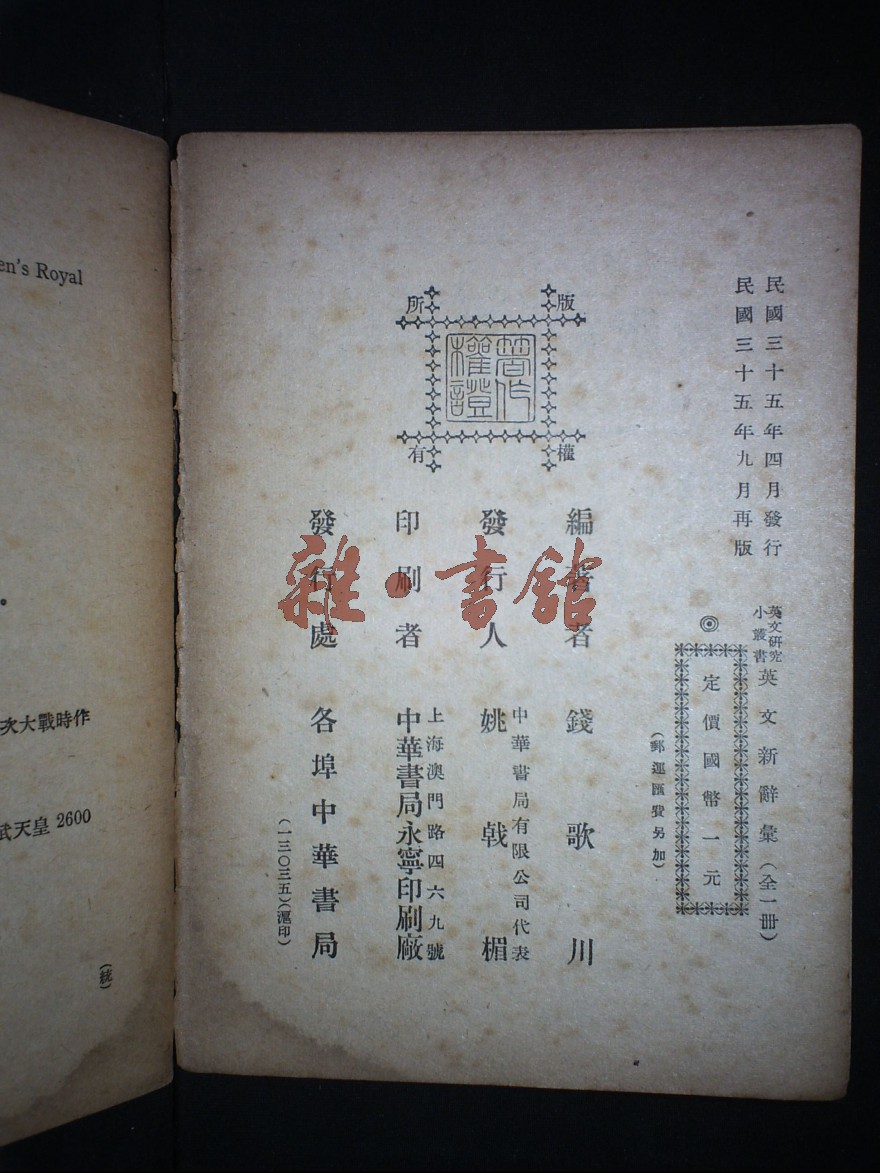 en's Royal
次大戰時作
武天皇 2600
民國三十五年四月發行
民國三十五年九月再版
英文研究
小叢書
英文新辭彙（全一冊）
◎
定價國幣一元
（郵運匯費另加）
版權所有
著作
權證
編著者 錢歌川
發行人 姚戟楣
中華書局有限公司代表
印刷者 中華書局永寧印刷廠
上海澳門路四六九號
發行處 各埠中華書局
（一三〇三五）（滬印）
雜·書館